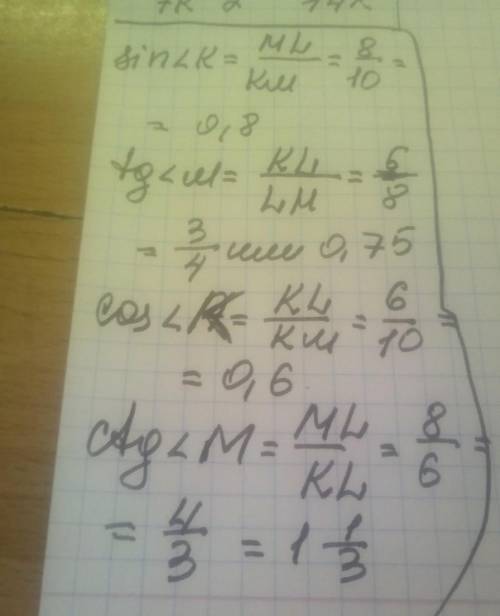 sin∠K = ML/KM = 8/10 =
= 0,8
tg∠M = KL/LM = 6/8
= 3/4 или 0,75
cos∠K = KL/KM = 6/10 =
= 0,6
ctg∠M = ML/KL = 8/6 =
= 4/3 = 1 1/3